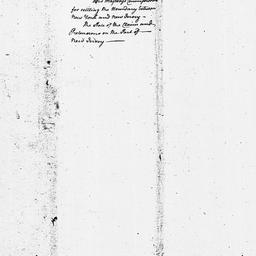 His Majesty's Commissioners
for settling the Boundary between
New York and New Jersey —
the State of the Claim and
Pretensions on the Part of —
New Jersey —